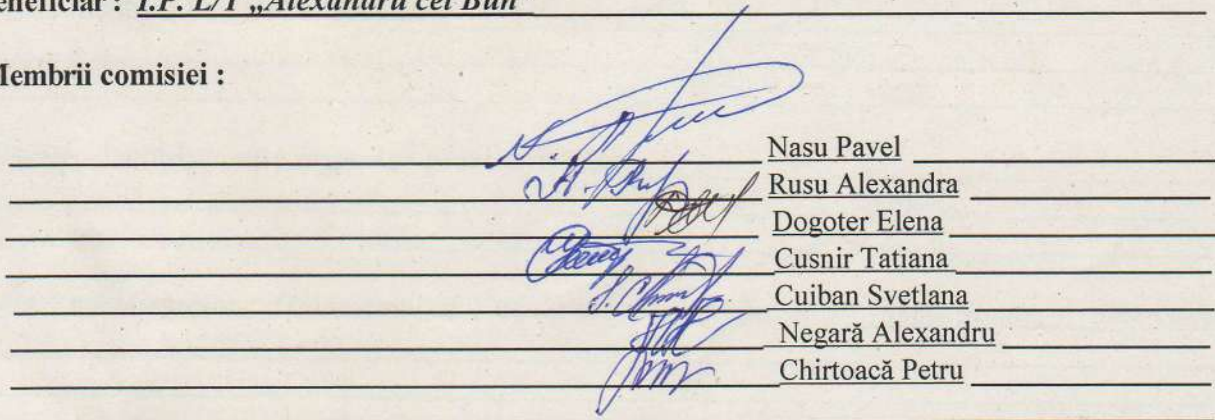 eneficiar : I.P. L/T „Alexandru cel Bun”
Membrii comisiei :
Nasu Pavel
Rusu Alexandra
Dogoter Elena
Cusnir Tatiana
Cuiban Svetlana
Negară Alexandru
Chirtoacă Petru